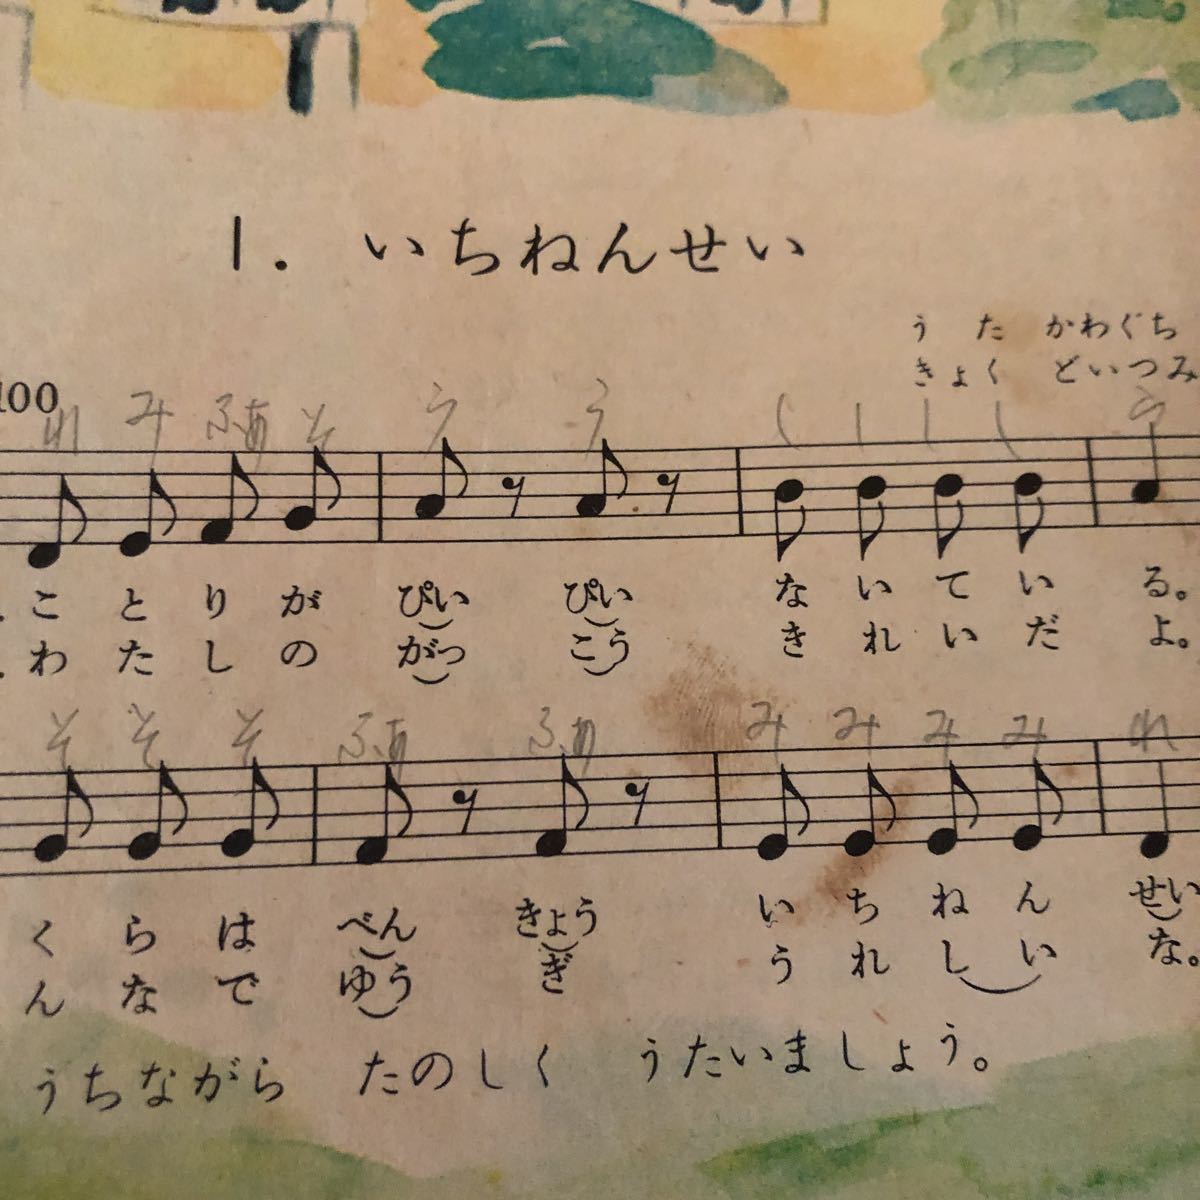 1. いちねんせい
うた かわぐち
きょく どいつみ
100
れ み ふぁ そ ら ら し し し し ら
こ と り が ぴい ぴい な い て い る。
わ た し の がっ こう き れ い だ よ。
そ そ そ ふぁ ふぁ み み み み れ
く ら は べん きょう い ち ね ん せい
ん な で ゆう ぎ う れ し い な。
うちながら たのしく うたいましょう。